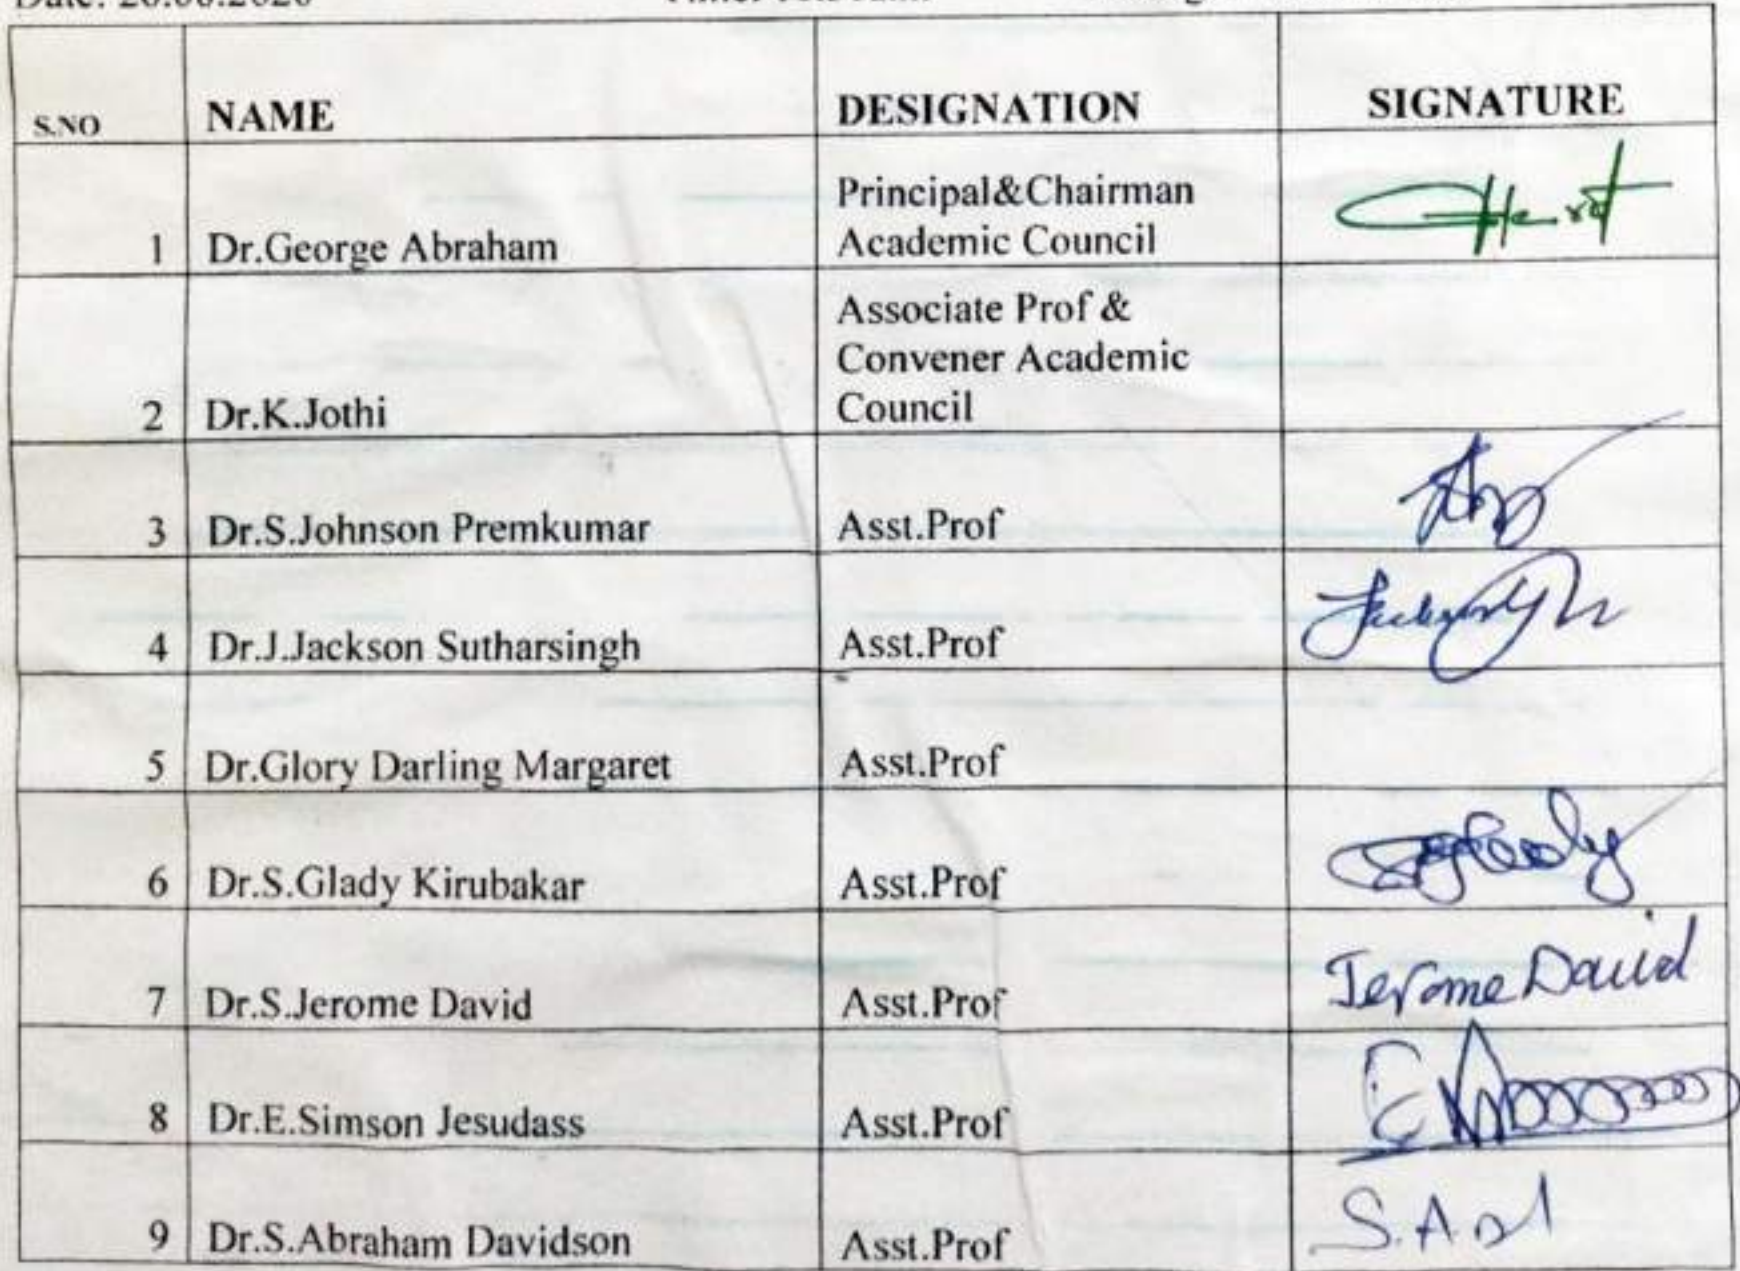 S.NO NAME DESIGNATION SIGNATURE
Principal&Chairman
1 Dr.George Abraham Academic Council
Associate Prof &
Convener Academic
2 Dr.K.Jothi Council
3 Dr.S.Johnson Premkumar Asst.Prof
4 Dr.J.Jackson Sutharsingh Asst.Prof
5 Dr.Glory Darling Margaret Asst.Prof
6 Dr.S.Glady Kirubakar Asst.Prof
7 Dr.S.Jerome David Asst.Prof Jerome David
8 Dr.E.Simson Jesudass Asst.Prof
9 Dr.S.Abraham Davidson Asst.Prof